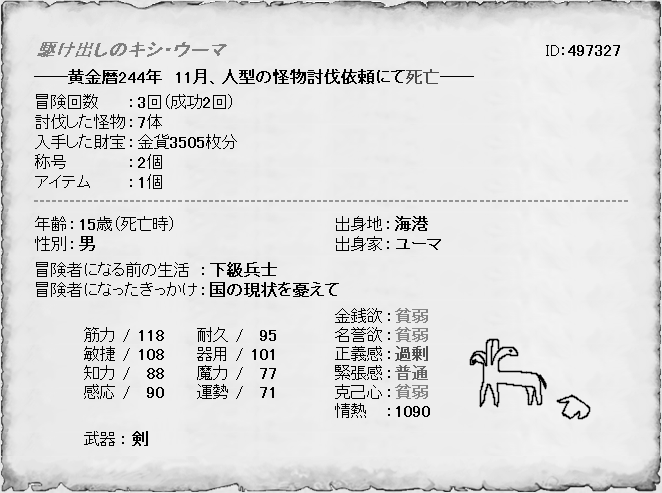 駆け出しのキシ・ウーマ ID:497327
――黄金暦244年 11月、人型の怪物討伐依頼にて死亡――
冒険回数 :3回(成功2回)
討伐した怪物:7体
入手した財宝:金貨3505枚分
称号 :2個
アイテム :1個
年齢:15歳(死亡時) 出身地:海港
性別:男 出身家:ユーマ
冒険者になる前の生活 :下級兵士
冒険者になったきっかけ:国の現状を憂えて
金銭欲:貧弱
筋力 / 118 耐久 / 95 名誉欲:貧弱
敏捷 / 108 器用 / 101 正義感:過剰
知力 / 88 魔力 / 77 緊張感:普通
感応 / 90 運勢 / 71 克己心:貧弱
情熱 :1090
武器:剣